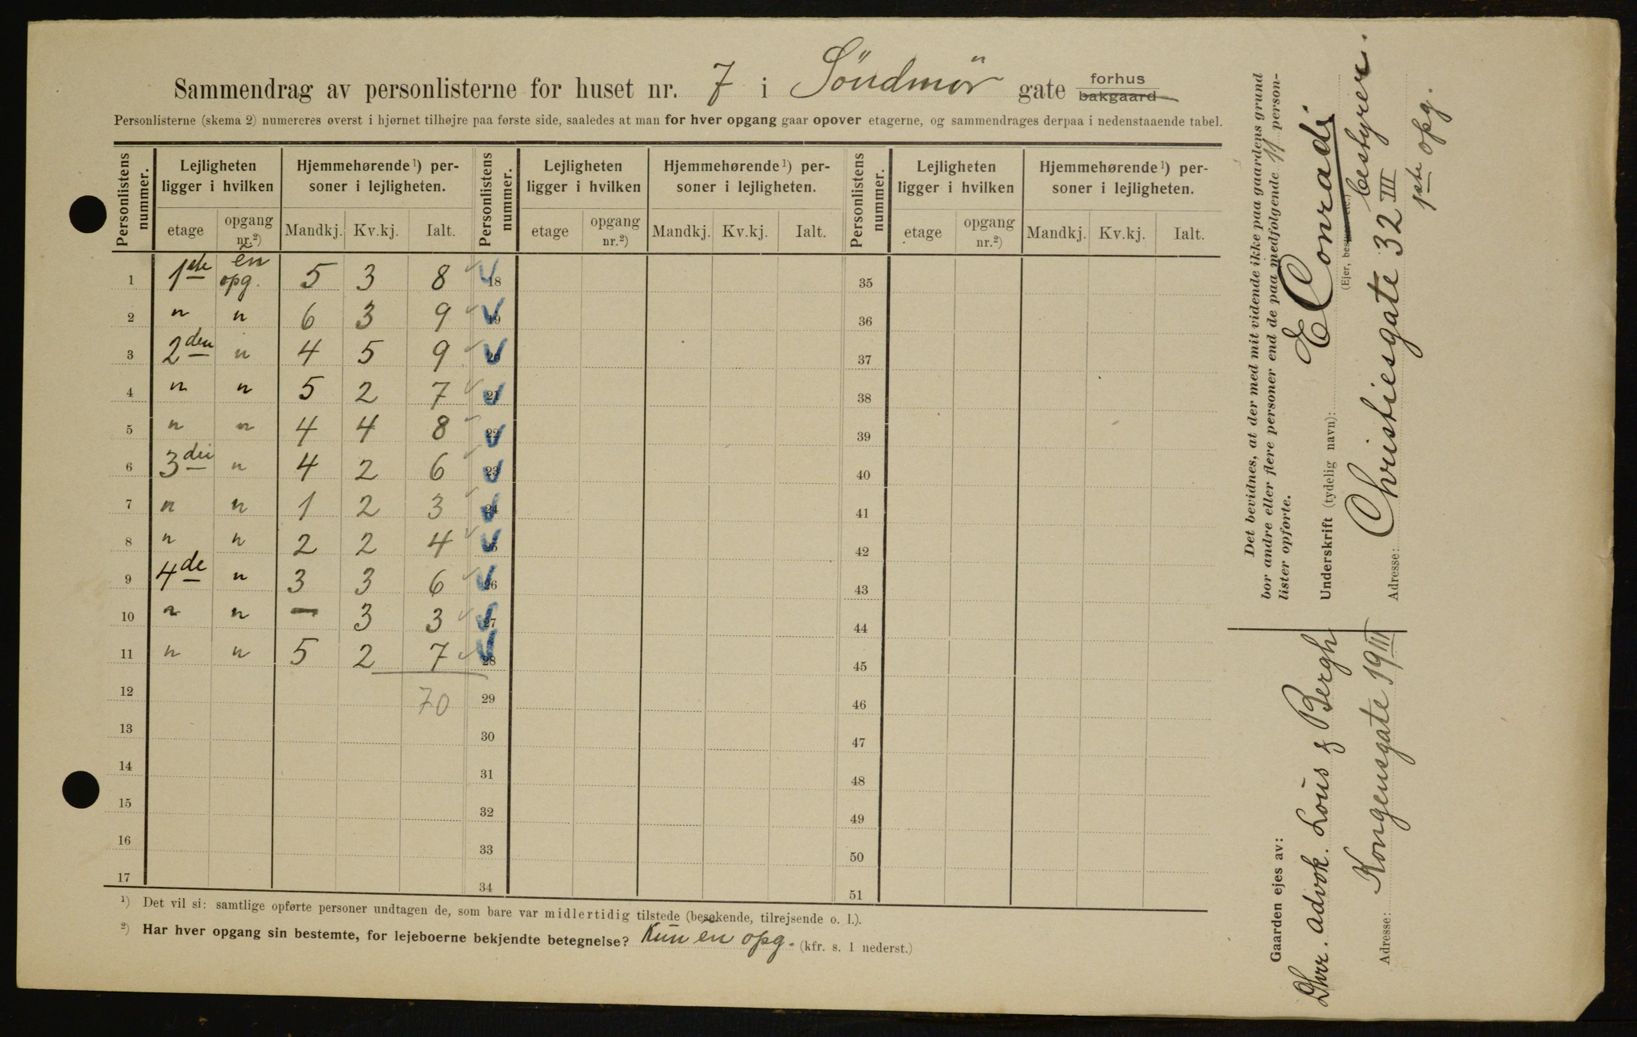 Sammendrag av personlisterne for huset nr. 7 i Söndmör gate forhus bakgaard
Personlisterne (skema 2) numereres øverst i hjørnet tilhøjre paa første side, saaledes at man for hver opgang gaar opover etagerne, og sammendrages derpaa i nedenstaaende tabel.
Personlistens nummer. Lejligheten ligger i hvilken Hjemmehørende ¹) personer i lejligheten. Personlistens nummer. Lejligheten ligger i hvilken Hjemmehørende ¹) personer i lejligheten. Personlistens nummer. Lejligheten ligger i hvilken Hjemmehørende ¹) personer i lejligheten.
etage opgang nr.²) Mandkj. Kv.kj. Ialt. etage opgang nr.²) Mandkj. Kv.kj. Ialt. etage opgang nr.²) Mandkj. Kv.kj. Ialt.
1 1ste én opg. 5 3 8 18 35
2 " " 6 3 9 19 36
3 2den " 4 5 9 20 37
4 " " 5 2 7 21 38
5 " " 4 4 8 22 39
6 3die " 4 2 6 23 40
7 " " 1 2 3 24 41
8 " " 2 2 4 25 42
9 4de " 3 3 6 26 43
10 " " — 3 3 27 44
11 " " 5 2 7 28 45
12 70 29 46
13 30 47
14 31 48
15 32 49
16 33 50
17 34 51
¹) Det vil si: samtlige opførte personer undtagen de, som bare var midlertidig tilstede (besøkende, tilrejsende o. l.).
²) Har hver opgang sin bestemte, for lejeboerne bekjendte betegnelse? Kun én opg. (kfr. s. 1 nederst.)
Det bevidnes, at der med mit vidende ikke paa gaardens grund
bor andre eller flere personer end de paa medfølgende 11 person-
lister opførte.
Underskrift (tydelig navn): E Conradi
bestyrer.
Adresse: Christiesgate 32 III
1ste opg.
Gaarden ejes av:
Dhrr. advok. Lous & Bergh
Adresse: Kongensgate 19 III